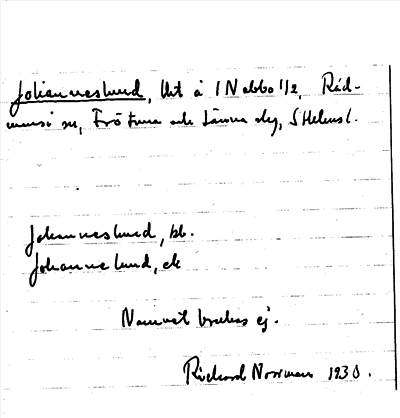 Johanneslund, lht å 1 Nabbo 1/2, Råd-
mansö sn, Frötuna och Länna slg, Sthlms l.
Johanneslund, bb.
Johannelund, ek
Namnet brukas ej.
Richard Norrman 1930.